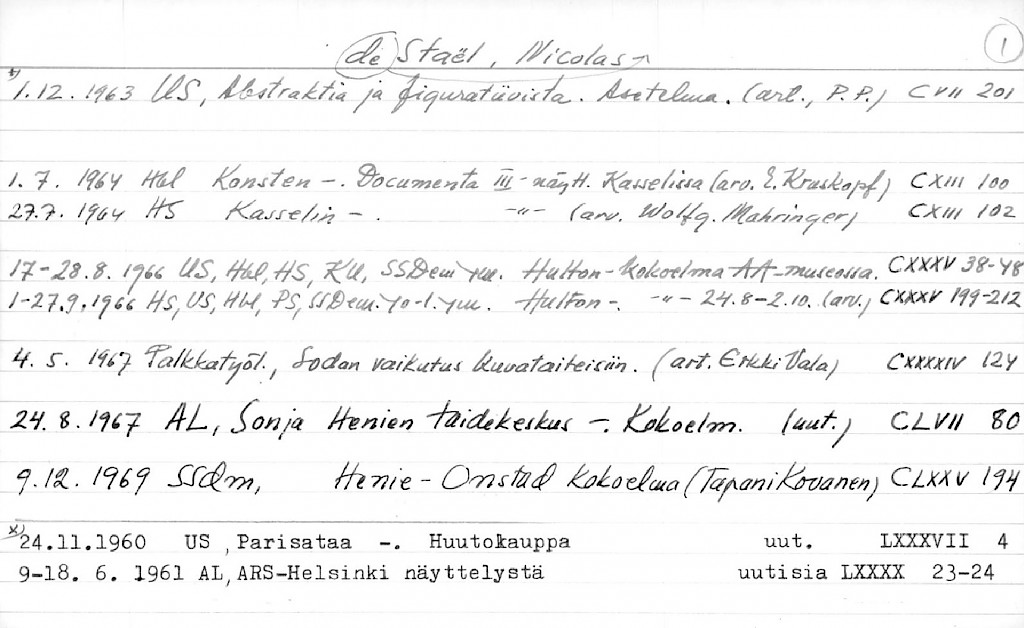 1
de Staël, Nicolas
x) 1.12. 1963 US, Abstraktia ja figuratiivista. Asetelma. (art., P.P.) CVII 201
1. 7. 1964 Hbl Konsten -. Documenta III - näytt. Kasselissa (arv. E. Kruskopf) CXIII 100
27.7. 1964 HS Kasselin -. -"- (arv. Wolfg. Mahringer) CXIII 102
17-28.8. 1966 US, Hbl, HS, KU, SSDem ym. Hulton-kokoelma AA-museossa. CXXXV 38-48
1-27.9.1966 HS, US, Hbl, PS, SSDem. yo-l. ym. Hulton -. -"- 24.8-2.10. (arv.) CXXXV 199-212
4. 5. 1967 Palkkatyöl., Sodan vaikutus kuvataiteisiin. (art. Erkki Vala) CXXXXIV 124
24. 8. 1967 AL, Sonja Henien taidekeskus -. Kokoelm. (uut.) CLVII 80
9.12. 1969 SSdm, Henie-Onstad kokoelma (Tapani Kovanen) CLXXV 194
x) 24.11.1960 US, Parisataa -. Huutokauppa uut. LXXXVII 4
9-18. 6. 1961 AL, ARS-Helsinki näyttelystä uutisia LXXXX 23-24